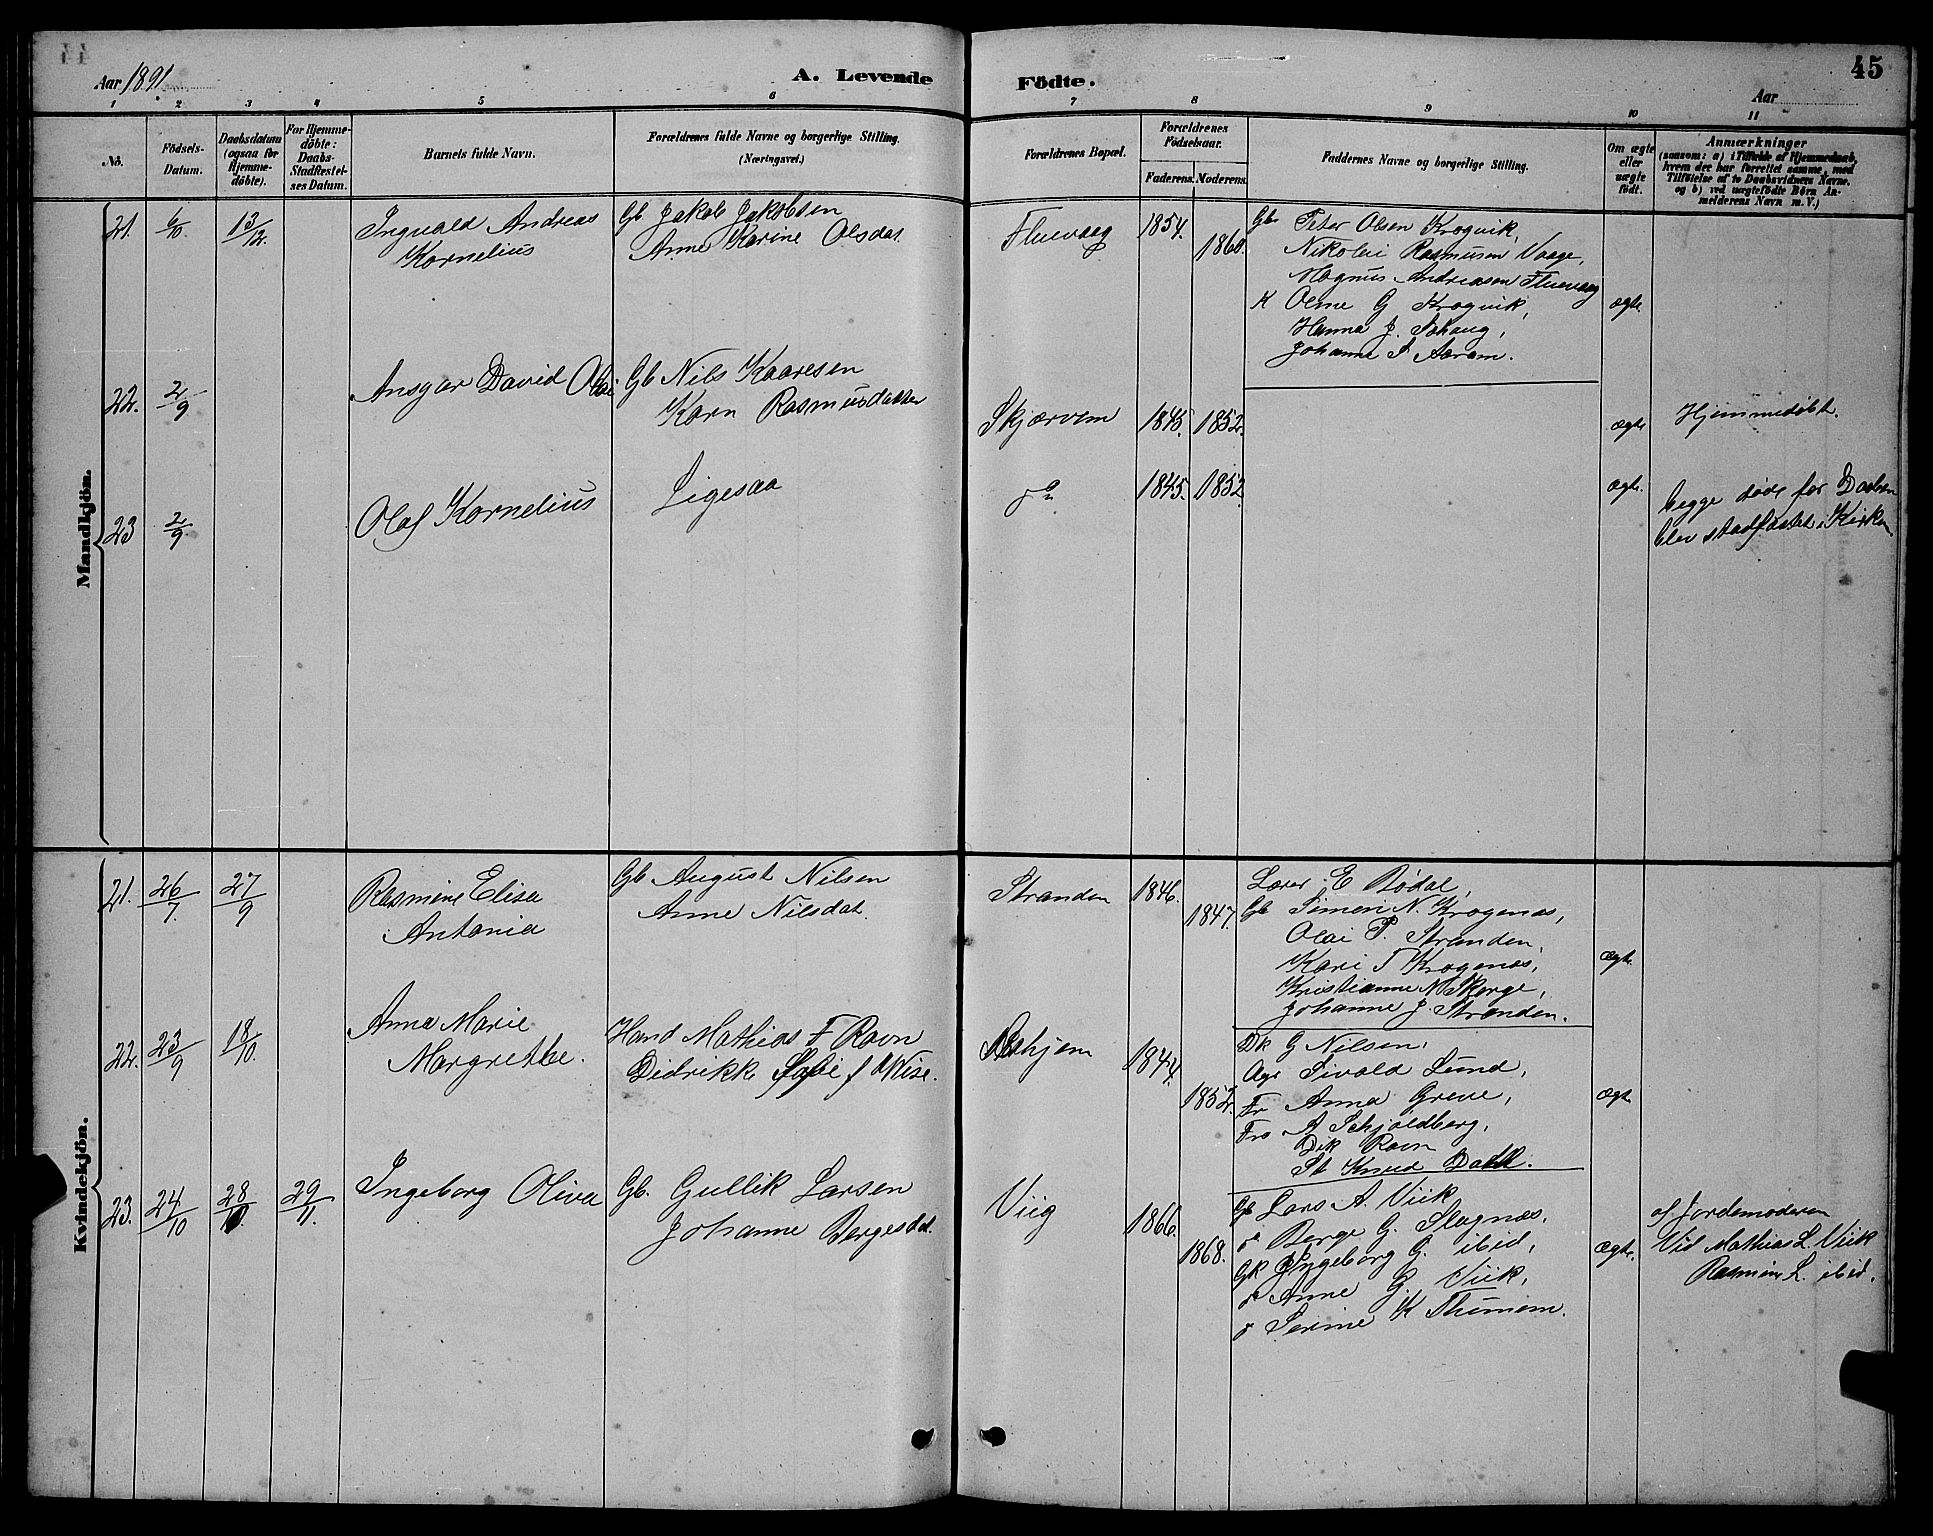 Aar 1891
A. Levende Födte.
45
Aar
1 2 3 4 5 6 7 8 9 10 11
No.
Födsels-Datum.
Daabsdatum (ogsaa for Hjemme-döbte).
For Hjemme-döbte: Daabs-Stadfæstel-ses Datum.
Barnets fulde Navn.
Forældrenes fulde Navne og borgerlige Stilling.
(Næringsvei.)
Forældrenes Bopæl.
Forældrenes Födselsaar.
Faderens. Moderens.
Faddernes Navne og borgerlige Stilling.
Om ægte eller uægte födt.
Anmærkninger
(saasom: a) i Tilfælde af Hjemmedaab, hvem der har forrettet samme, med Tilföielse af to Daabsvidners Navne, og b) ved uægtefödte Börn Anmelderens Navn m. V.)
Mandkjön.
21. 6/10 13/12. Ingvald Andreas
Kornelius
Gb Jakob Jakobsen
Anne Karine Olsdat.
Fluevaag 1854. 1860.
Gb Peter Olsen Krogvik,
Nikolai Rasmusen Vaage,
Magnus Andreasen Fluevaag
K Oline G Krogvik,
Hanna J. Sohaug,
Johanne S Aaram.
ægte
22. 2/9 Ansgar David Olai
Gb Nils Kaaresen
Karn Rasmusdatter
Skjærvem 1845. 1852.
ægte
Hjemmedöbt.
23 2/9 Olaf Kornelius
Ligesaa
do 1845. 1852
ægte.
begge døde før Daaben
blev stadfæstet i Kirken
Kvindekjön.
21. 26/7. 27/9 Rasmine Elisa
Antonia
Gb August Nilsen
Anne Nilsdat.
Stranden 1846. 1847.
Lærer E Bødal,
Gb Simen N. Krogenæs,
Olai P. Stranden,
Kari T Krogenæs,
Kristianne N Skorge,
Johanne J. Stranden.
ægte.
22. 23/9 18/10. Anna Marie
Margrethe.
Hand Mathias F Ravn
Didrikke Sofie f Wise.
1844. 1852.
Dk G Nilsen,
Age Sivald Lund,
Fr Anna Greve,
Frø A Schjoldberg,
Dik Ravn
St Knud Dahl.
ægte
23. 24/10 28/10. 29/11. Ingeborg Oliva
Gb. Gullik Larsen
Johanne Bergesdat.
Viig 1866. 1868.
Gb Lars A. Viik
d Berge G. Slagnæs,
Gk Ingeborg G. ibid,
d Anne G. Viik,
d Serine K Thunem.
ægte.
af Jordemoderen
Vid Mathias L. Viik
Rasmine L. ibid.